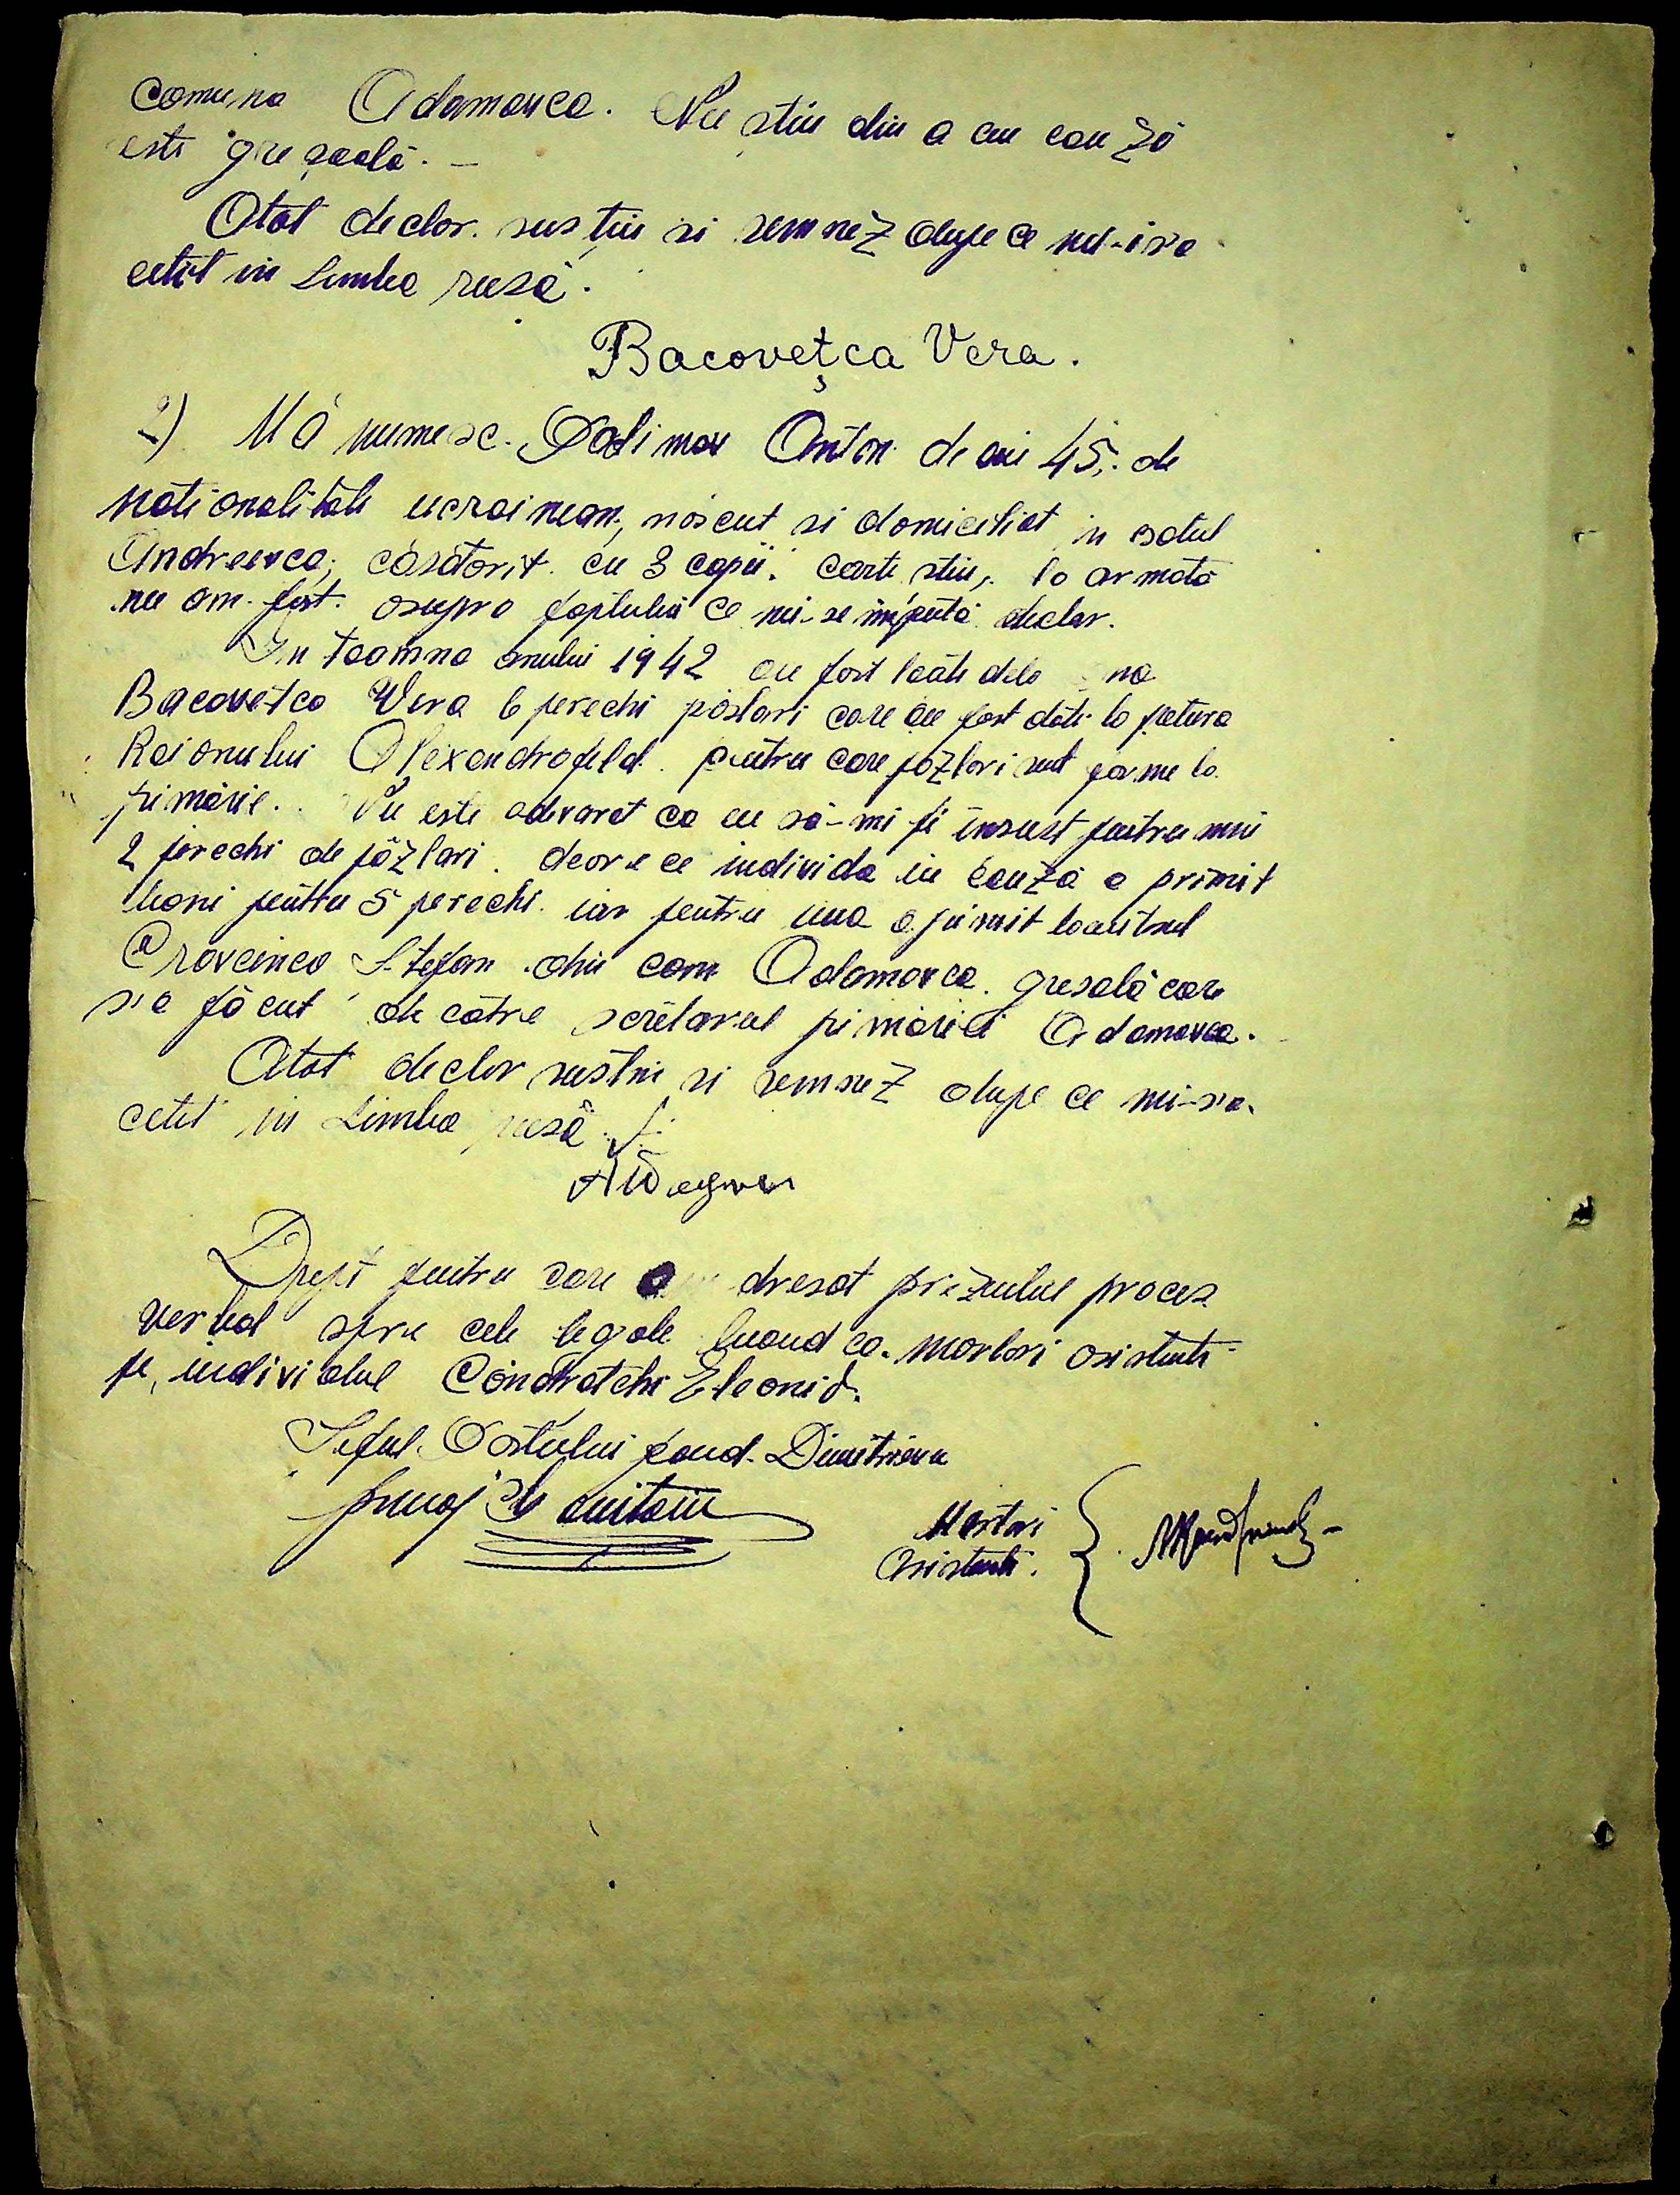 comuna Adamovca. Nu știu din a cui cauză
este greșeală. —
Atât declar susțin si semnez dupe ce mi-sa
cetit in Limba rusă.
Bacovețca Vera.
2) Mă numesc Dadimov Anton de ani 45, de
nationalitate ucrainean, născut si domiciliat in satul
Andreevca, căsătorit cu 3 copii, carte știu, la armată
nu am fost. asupra faptului ce mi-se impută declar.
In toamna anului 1942 au fost luate dela na
Bacovetca Vera 6 perechi păslari care au fost date la pretura
Raionului Alexandrofeld pentru care pâzlari sunt forme la
primărie. Nu este advarat ca eu să-mi fi insust pentru mine
2 perechi de pâzlari deore ce individa in cauză a primit
boni pentru 5 perechi iar pentru una a primit locuitorul
Cravcenco Stefan din com Adamovca. gresală care
s'a făcut de către scretarul primăriei Adamovca.
Atât declar sustin si semnez dupe ce mi-s'a
cetit in Limba rusă.
Drept pentru care dresat prezentul proces
verbal spre cele legale luand ca martori asistenti
pe individul Condratchi Eleonid.
Seful Postului jand. Dimitrievca
Martori
Asistenti.